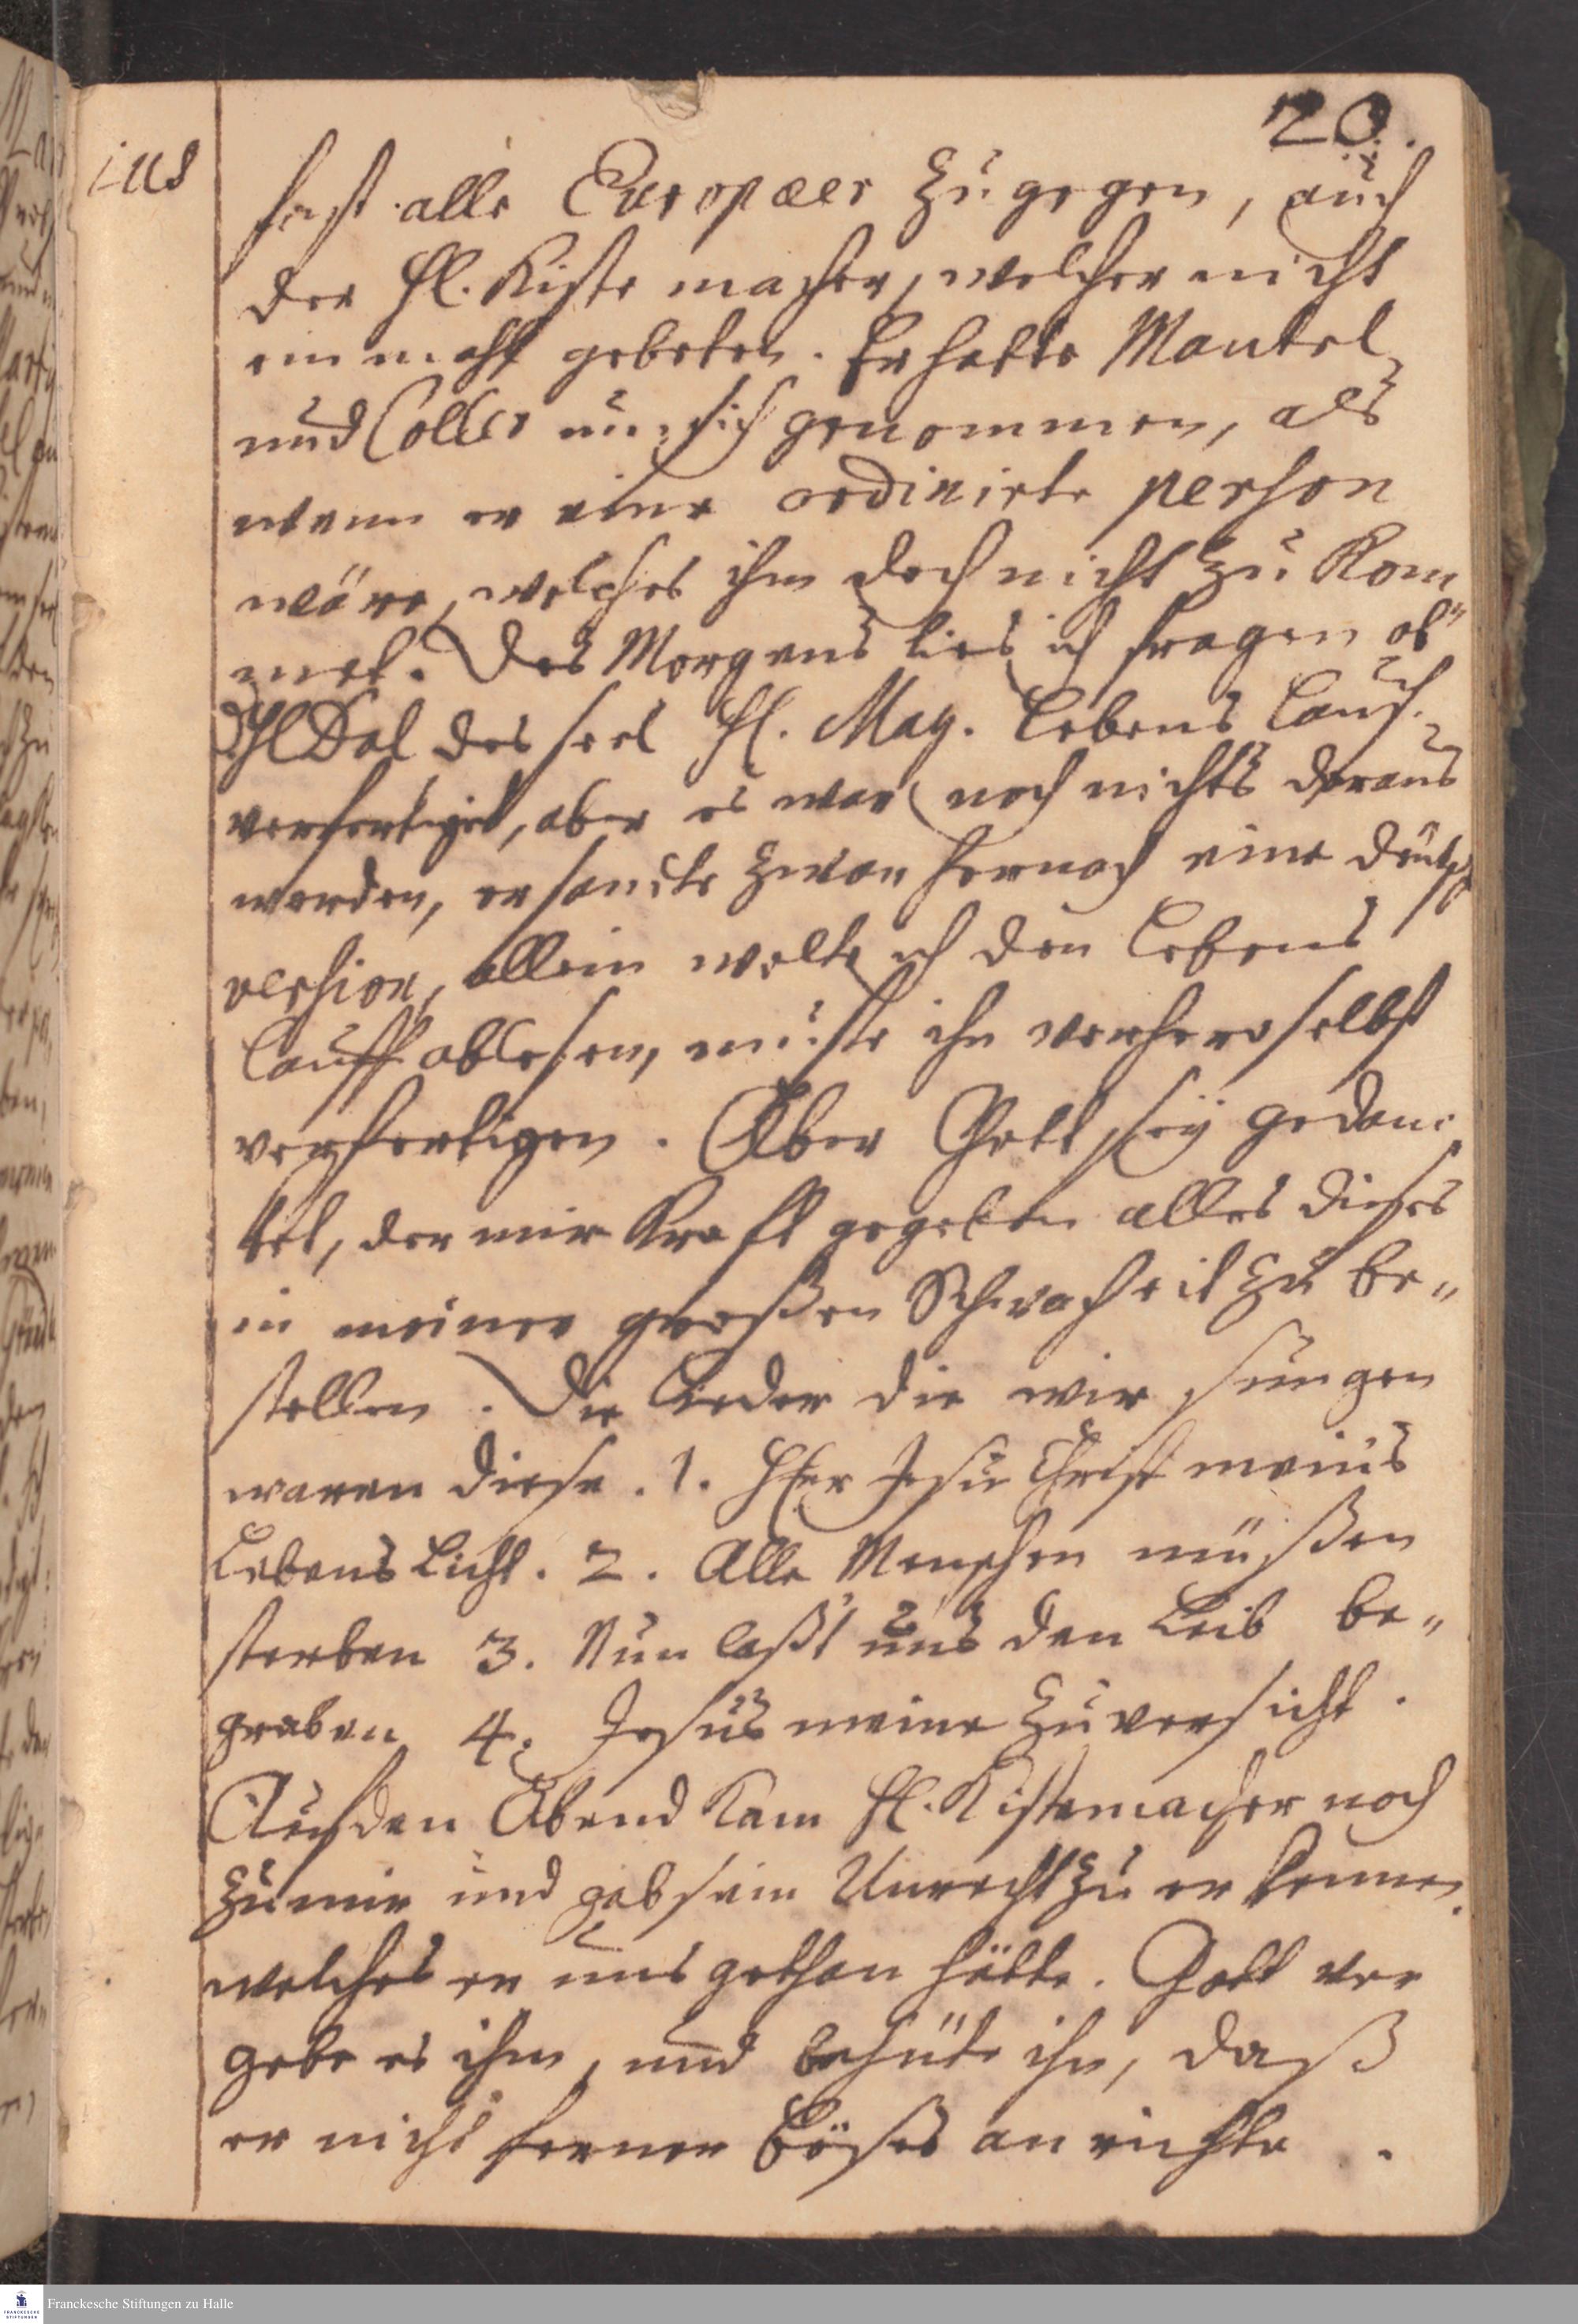 20.
ius
fast alle Europæer zugegen, auch
der H. Kistemacher, welcher nicht
einmahl gebeten. Er hatte Mantel
und Coller um sich genommen, als
wenn er eine ordinirte person
wäre, welches ihm doch nicht zu kom
met. Des Morgens lies ich fragen ob
H Dal des seel H. Mag. Lebens Lauf
verfertiget, aber es war noch nichts daraus
worden, er sandte zwar hernach eine deutsch
version, allein wolte ich den Lebens
lauff ablesen, muste ihn vorhero selbst
verfertigen. Aber Gott sey gedan-
ket, der mir Krafft gegeben alles dieses
in meiner großen Schwachheit zu be-
stellen. Die Lieder die wir sungen
waren diese. 1. HErr Jesu Christ meins
Lebens Licht. 2. Alle Menschen müßen
sterben 3. Nun laßt uns den Leib be-
graben 4. Jesus meine Zuversicht.
Auf den Abend kam H. Kistemacher noch
zu mir und gab sein Unrecht zu erkennen
welches er uns gethan hätte. Gott ver
gebe es ihm, und behüte ihn, daß
er nicht ferner böses anrichte.
Franckesche Stiftungen zu Halle